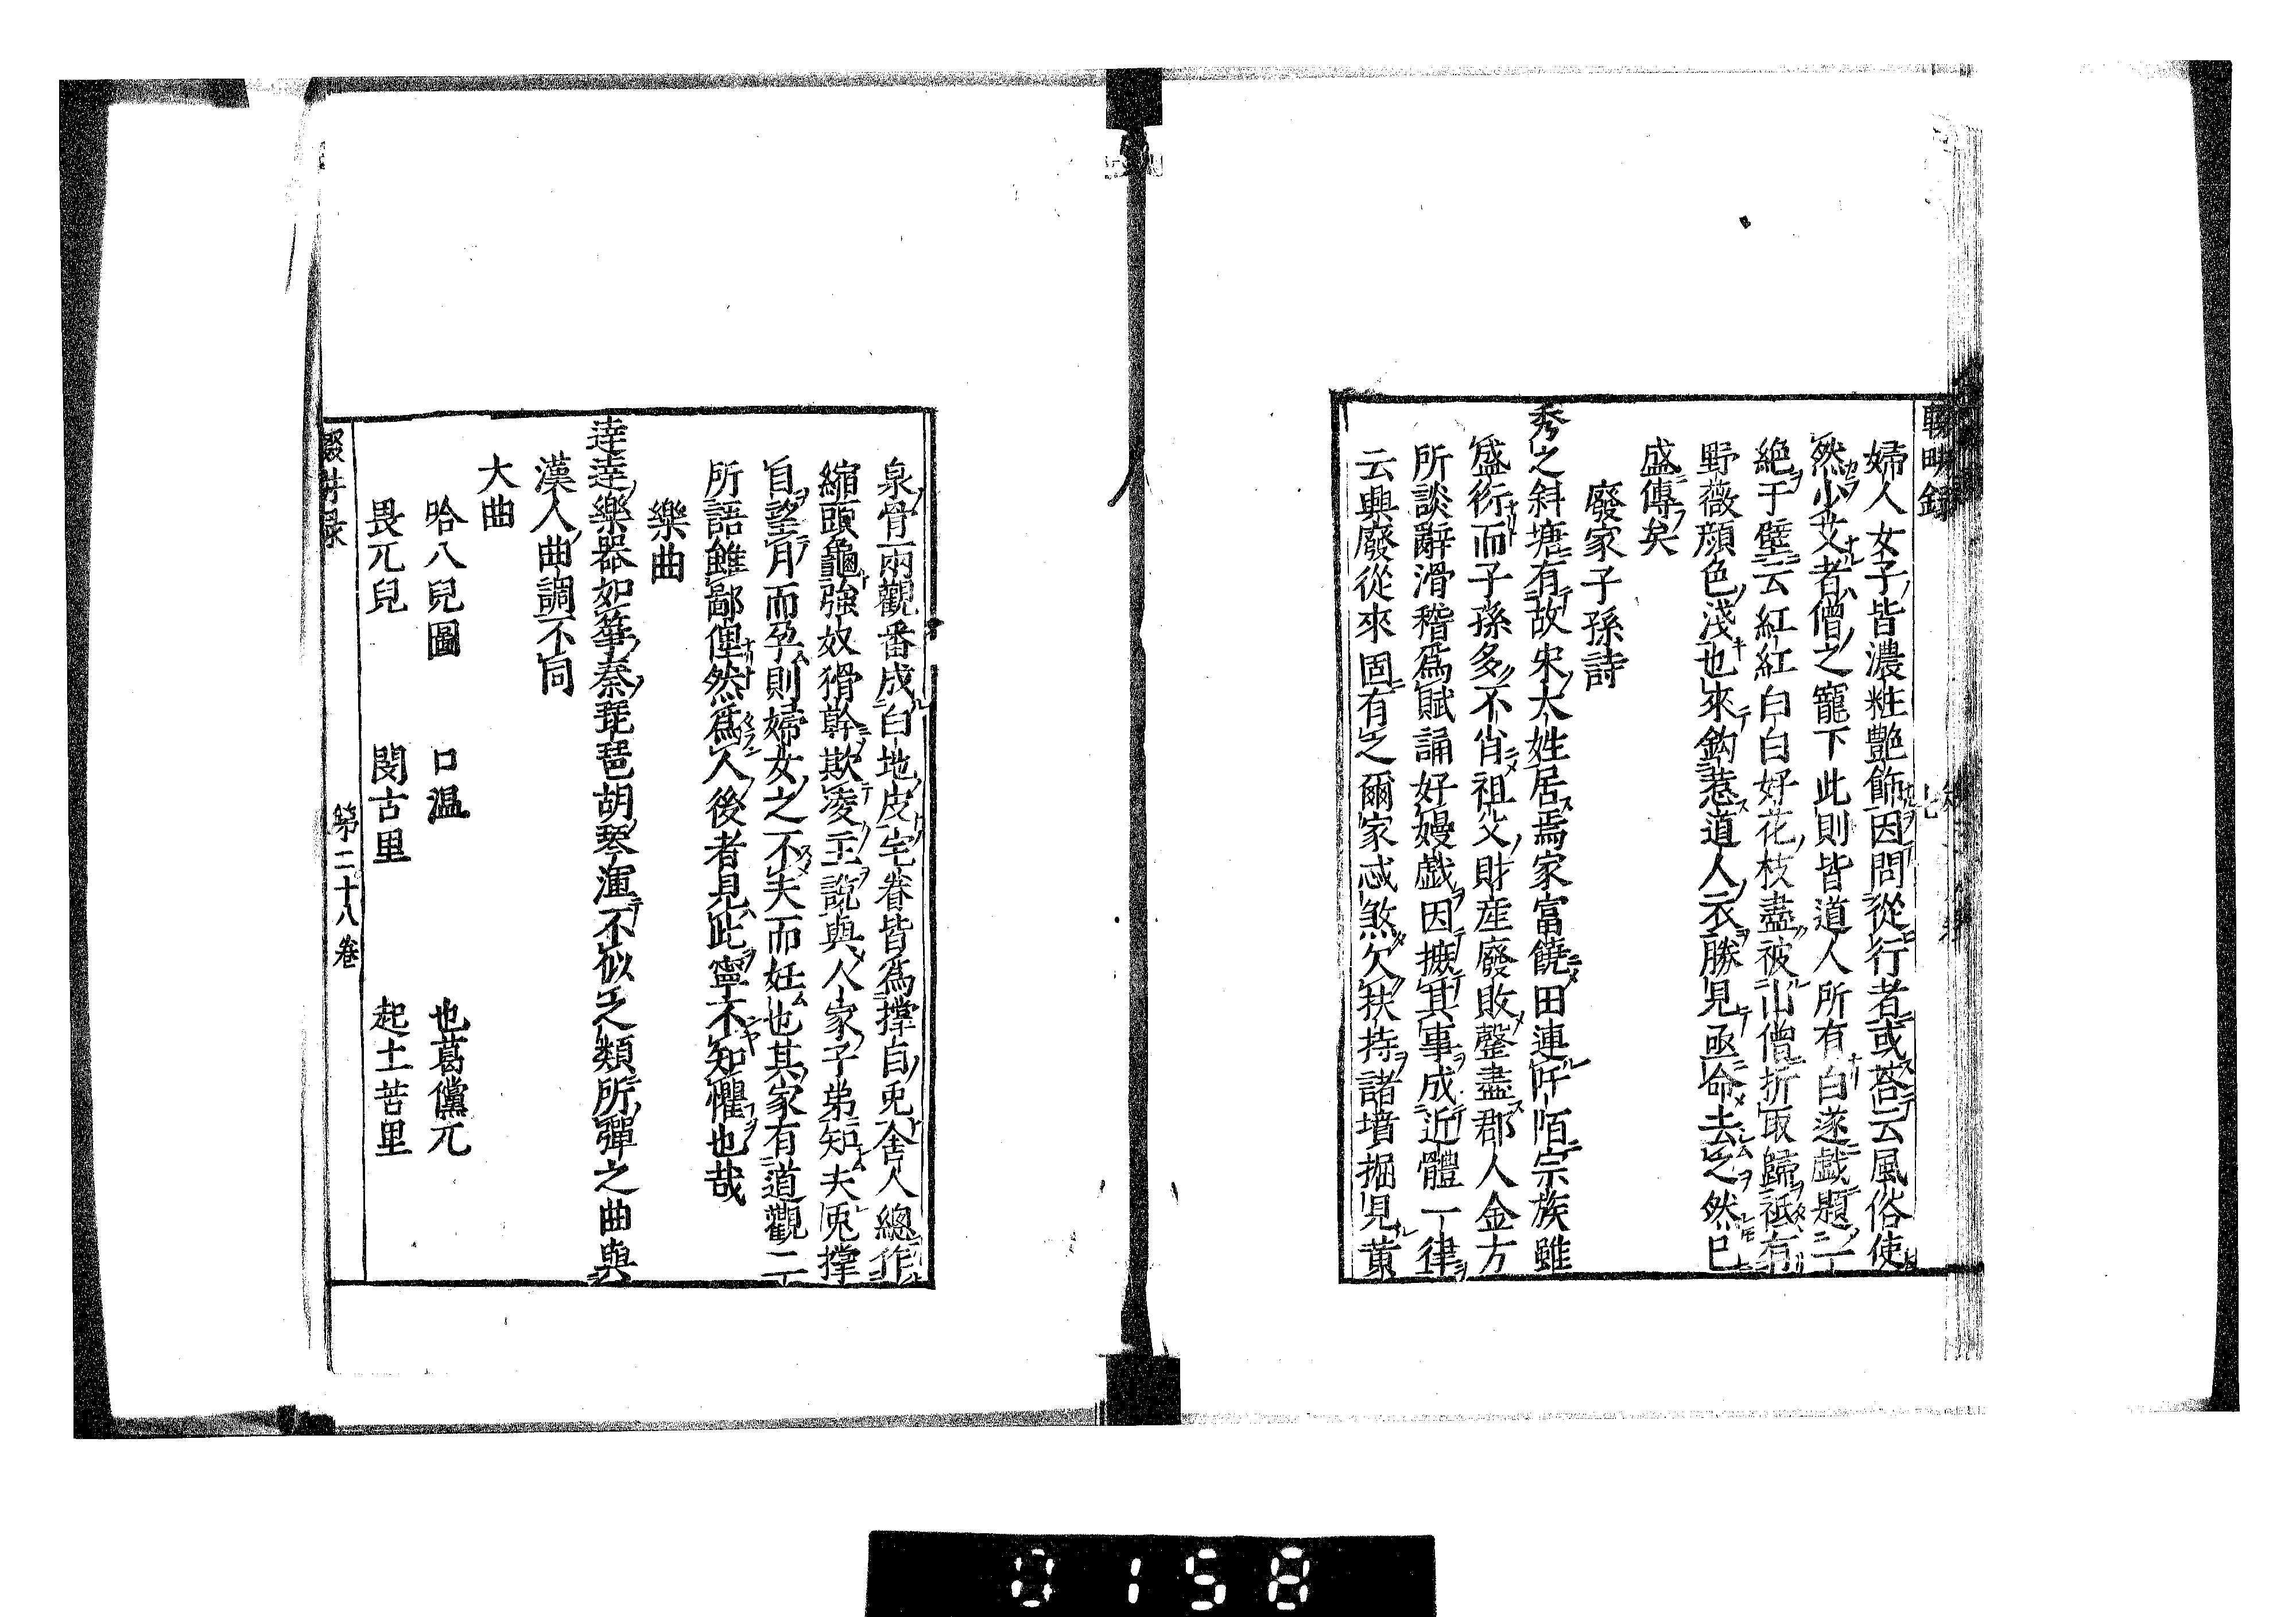 輟畊録
七
婦人女子皆濃粧艷飾因問從行者或荅云風俗使
然少艾者僧之寵下此則皆道人所有白遂戯題一
絶于壁云紅紅白白好花枝盡被山僧折取歸祗有
野薇顔色淺也來鈎惹道人衣勝見亟命去之然已
盛傳矣
廢家子孫詩
秀之斜塘有故宋大姓居焉家富饒田連阡陌宗族雖
盛衍而子孫多不肖祖父財産廢敗罄盡郡人金方
所談辭滑稽爲賦誦好嫚戯因摭其事成近體一律
云興廢從來固有之爾家忒煞欠扶持諸墳掘見黄
泉骨兩觀番成白地皮宅眷皆爲撑目兎舍人總作
縮頭龜強奴猾幹欺凌主說與人家子弟知夫兎撑
目望月而孕則婦女之不夫而妊也其家有道觀二
所語雖鄙俚然爲人後者見此寧不知懼也哉
樂曲
達達樂器如箏秦琵琶胡琴渾不似之類所彈之曲與
漢人曲調不同
大曲
哈八兒圖　口温　也葛儻兀
畏兀兒　閔古里　起土苦里
輟畊录
第二十八卷
0158